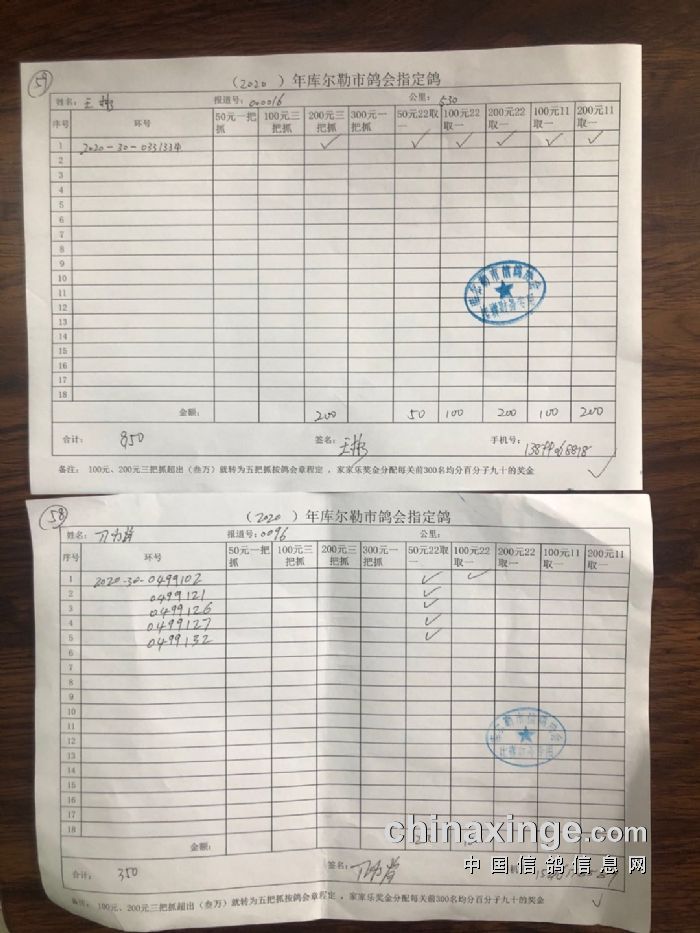 59
（2020 ）年库尔勒市鸽会指定鸽
姓名： 王彬 报道号：000016 公里：530
序号 环号 50元一把抓 100元三把抓 200元三把抓 300元一把抓 50元22取一 100元22取一 200元22取一 100元11取一 200元11取一
1 2020-30-0331334 ✓ ✓ ✓ ✓ ✓ ✓
2
3
4
5
6
7
8
9
10
11
12
13
14
15
16
17
18
比赛财务专用
金额： 200 50 100 200 100 200
合计： 850 签名：王彬 手机号：
备注： 100元、200元三把抓超出（叁万）就转为五把抓按鸽会章程定 ，家家乐奖金分配每关前300名均分百分子九十的奖金
58
（2020 ）年库尔勒市鸽会指定鸽
姓名： 报道号：0096 公里：
序号 环号 50元一把抓 100元三把抓 200元三把抓 300元一把抓 50元22取一 100元22取一 200元22取一 100元11取一 200元11取一
1 2020-30-0499102 ✓ ✓
2 0499121 ✓
3 0499126 ✓
4 0499127 ✓
5 0499132 ✓
6
7
8
9
10
11
12
13
14
15
16
17
18
比赛财务专用
金额：
chinaxinge.com
中国信鸽信息网
合计： 350 签名：
备注：100元、200元三把抓超出（叁万）就转为五把抓按鸽会章程定 ，家家乐奖金分配每关前300名均分百分子九十的奖金